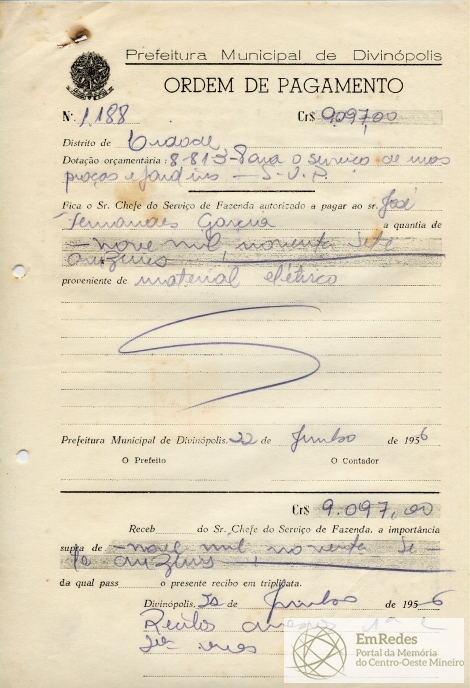 Prefeitura Municipal de Divinópolis
ORDEM DE PAGAMENTO
Nº. 1.188 Cr$ 9.097,00
Distrito de Cidade
Dotação orçamentária: 8-81-3-Para o serviço de ruas
praças e jardins — S.V.P.
Fica o Sr. Chefe do Serviço de Fazenda autorizado a pagar ao sr. José
Fernandes a quantia de
—nove mil noventa sete
cruzeiros
proveniente de material elétrico
Prefeitura Municipal de Divinópolis, 22 de Junho de 1956
O Prefeito O Contador
Cr$ 9.097,00
Receb do Sr. Chefe do Serviço de Fazenda, a importância
supra de —nove mil noventa se-
te cruzeiros
da qual pass o presente recibo em triplicata.
Divinópolis, de Junho de 1956
Recibos
EmRedes
Portal da Memória
do Centro-Oeste Mineiro